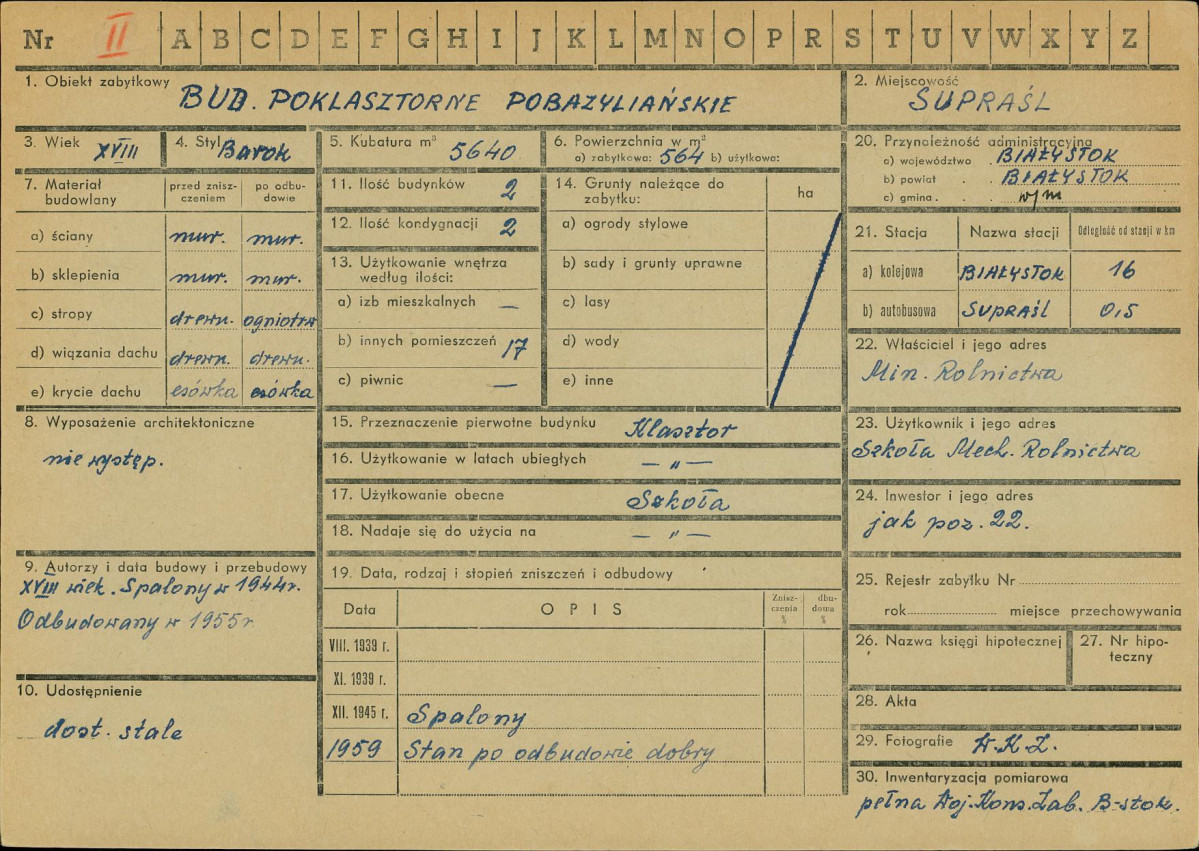 Nr II A B C D E F G H I J K L M N O P R S T U V W X Y Z
1. Obiekt zabytkowy
BUD. POKLASZTORNE POBAZYLIAŃSKIE
2. Miejscowość
SUPRAŚL
3. Wiek XVIII
4. Styl Barok
5. Kubatura m³ 5640
6. Powierzchnia w m²
a) zabytkowa: 564 b) użytkowa:
7. Materiał budowlany
przed znisz-
czeniem
po odbu-
dowie
a) ściany mur. mur.
b) sklepienia mur. mur.
c) stropy drewn. ogniotrw
d) wiązania dachu drewn. drewn.
e) krycie dachu esówka esówka
8. Wyposażenie architektoniczne
nie występ.
9. Autorzy i data budowy i przebudowy
XVIII wiek. Spalony w 1944r.
Odbudowany w 1955r.
10. Udostępnienie
dost. stale
11. Ilość budynków 2
12. Ilość kondygnacji 2
13. Użytkowanie wnętrza
według ilości:
a) izb mieszkalnych —
b) innych pomieszczeń 17
c) piwnic —
14. Grunty należące do
zabytku:
ha
a) ogrody stylowe
b) sady i grunty uprawne
c) lasy
d) wody
e) inne
15. Przeznaczenie pierwotne budynku Klasztor
16. Użytkowanie w latach ubiegłych — „ —
17. Użytkowanie obecne Szkoła
18. Nadaje się do użycia na — „ —
19. Data, rodzaj i stopień zniszczeń i odbudowy
Data OPIS
Znisz-
czenia
%
dbu-
dowa
%
VIII. 1939 r.
XI. 1939 r.
XII. 1945 r. Spalony
1959 Stan po odbudowie dobry
20. Przynależność administracyjna
a) województwo . BIAŁYSTOK
b) powiat . . BIAŁYSTOK
c) gmina . . w/m
21. Stacja Nazwa stacji Odległość od stacji w km
a) kolejowa BIAŁYSTOK 16
b) autobusowa SUPRAŚL 0,5
22. Właściciel i jego adres
Min. Rolnictwa
23. Użytkownik i jego adres
Szkoła Mech. Rolnictwa
24. Inwestor i jego adres
jak poz. 22.
25. Rejestr zabytku Nr
rok miejsce przechowywania
26. Nazwa księgi hipotecznej
27. Nr hipo-
teczny
28. Akta
29. Fotografie W.K.Z.
30. Inwentaryzacja pomiarowa
pełna Woj. Kons. Zab. B-stok.